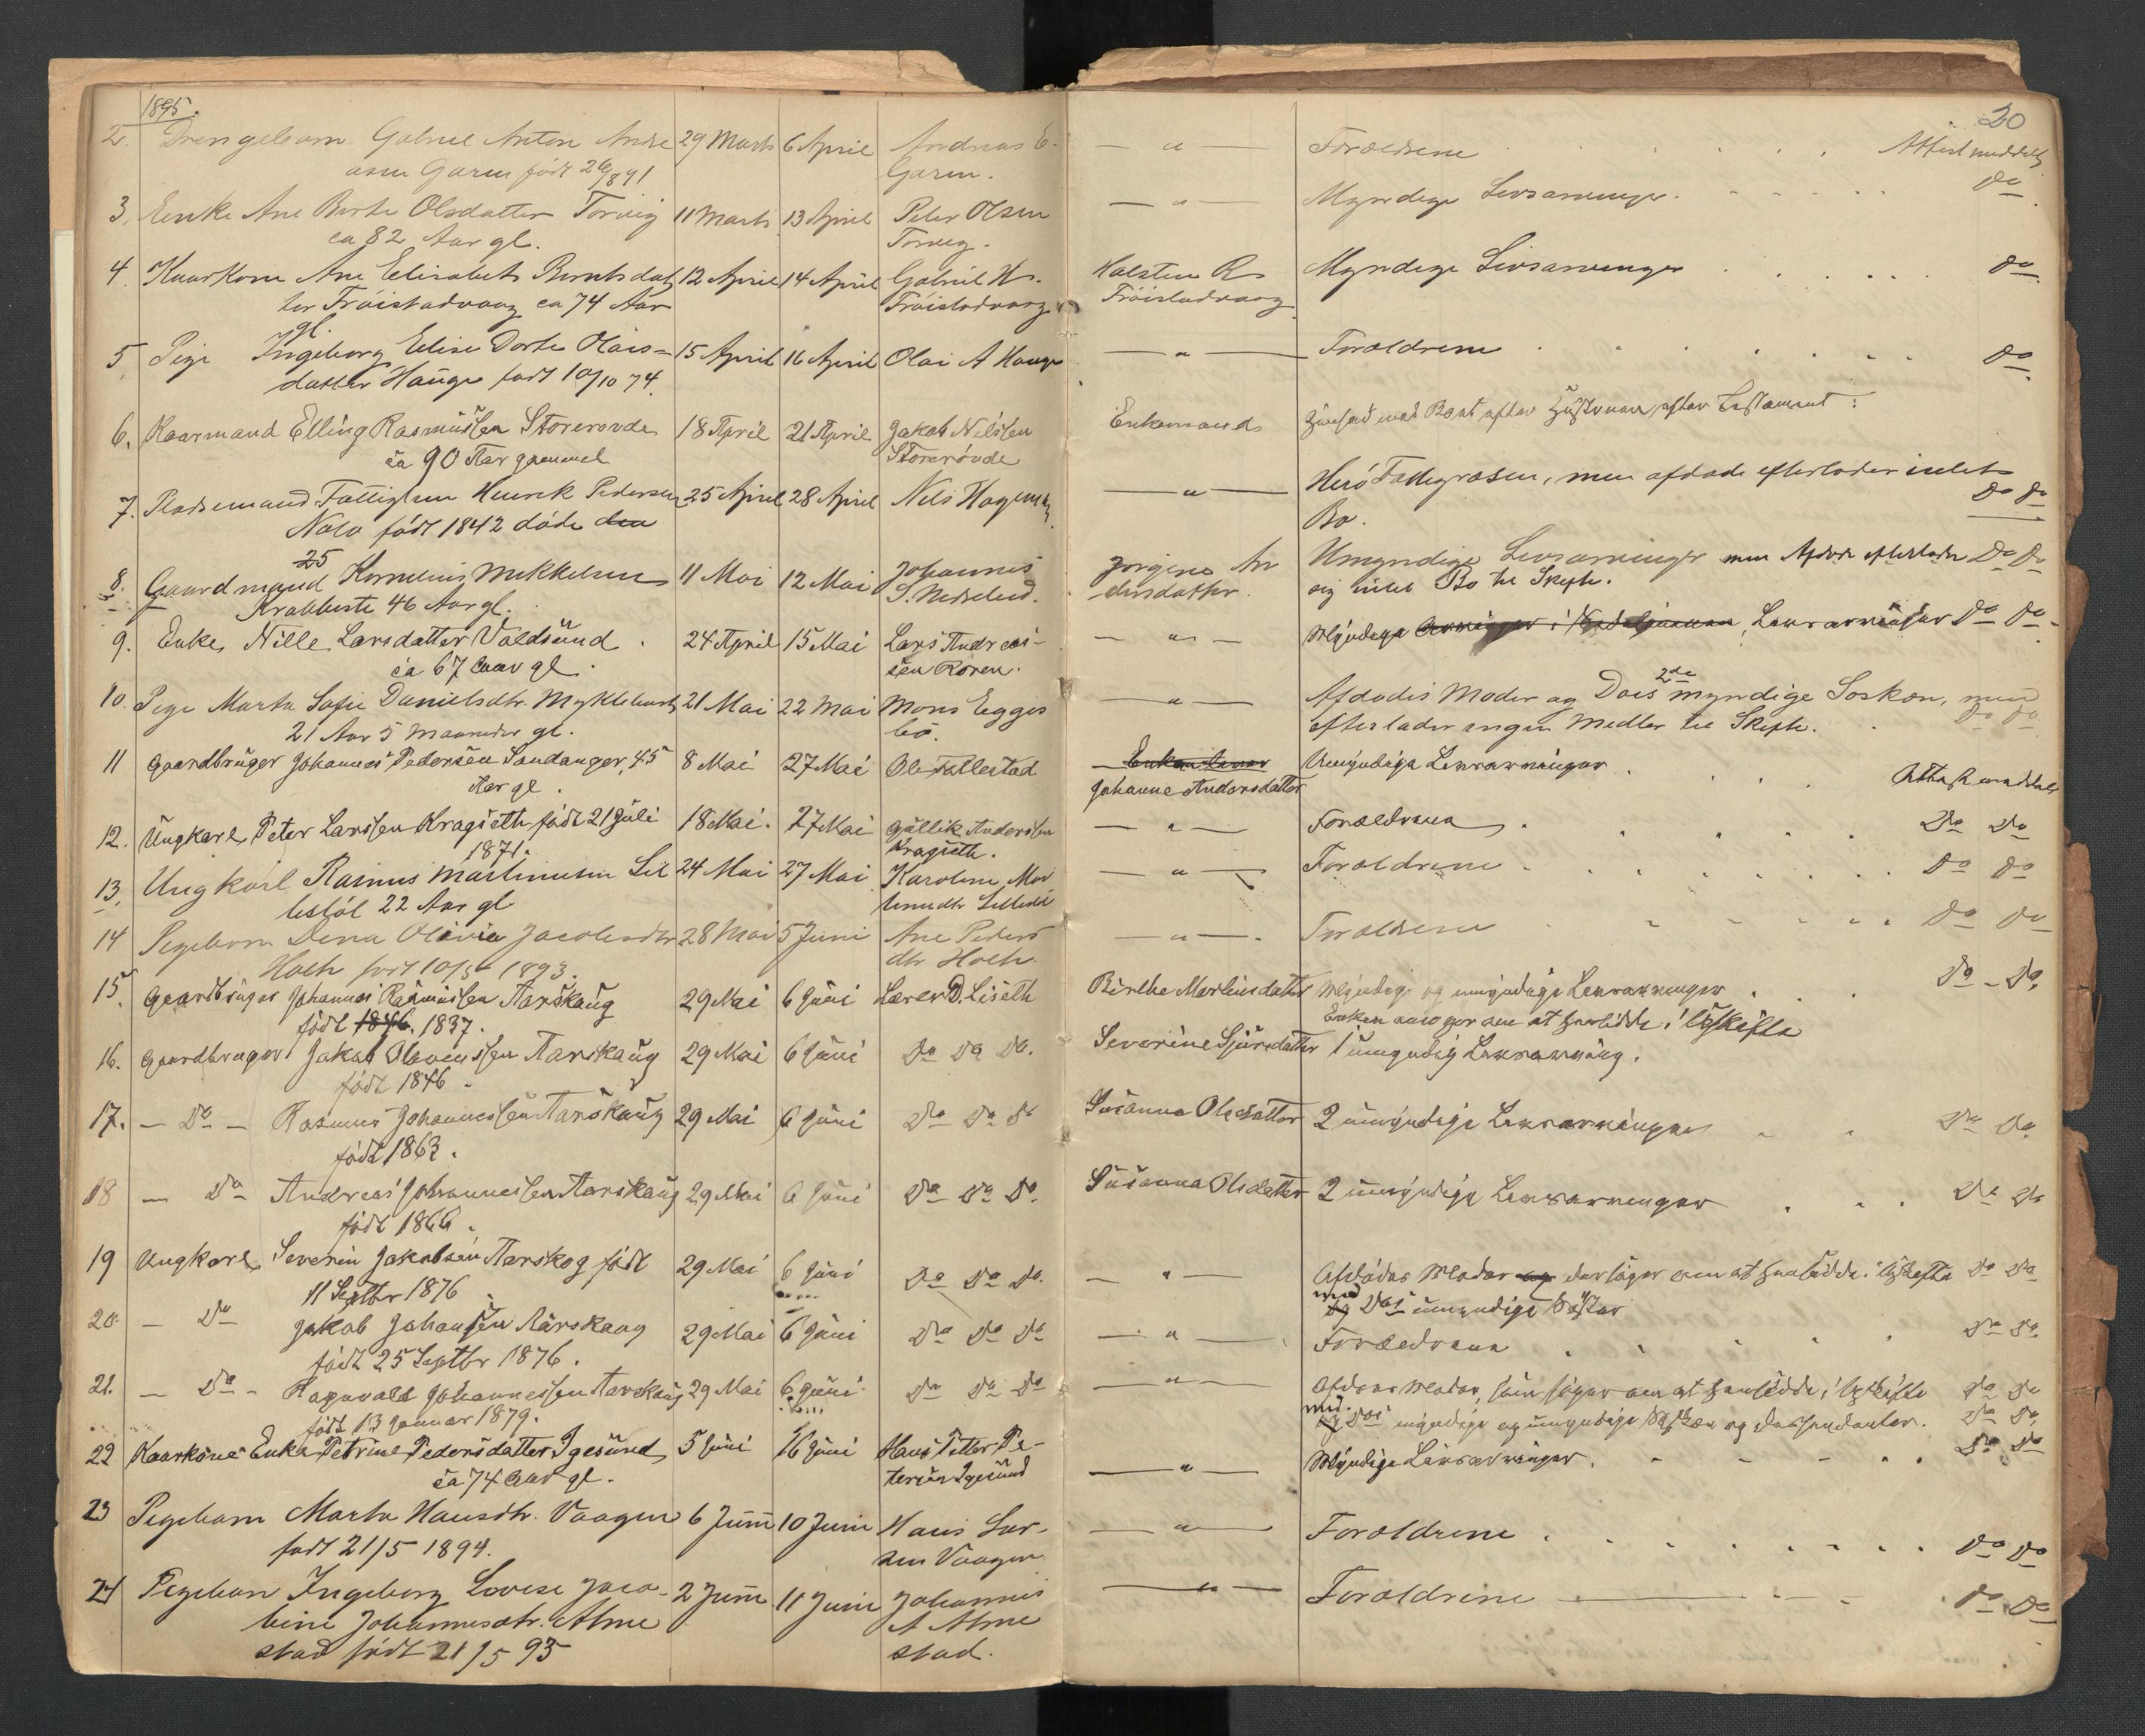 1895.
20
2. Drengebarn Gabriel Anton Andre 29 Marts 6 April Andreas E. — " — Forældrene Attest meddelt
asen Garen født 26/8 91 Garen.
3. Enke Ane Berte Olsdatter Torvig 11 Marts 13 April Peter Olsen — " — Myndige Livsarvinger. Do
ca 82 Aar gl. Torvig.
4. Kaarkone Ane Elisabet Berntsdat 12 April 14 April Gabriel H. Halsten R Myndige Livsarvinger Do
ter Frøistadvaag ca 74 Aar Frøistadvaag Frøistadvaag
gl.
5 Pige Ingeborg Elise Dorte Olais= 15 April 16 April Olai A Hauge — " — Forældrene Do
datter Hauge født 10/10 74.
6. Kaarmand Elling Rasmussen Storerøvde 18 April 21 April Jakob Nilssen Enkemand
ca 90 Aar gammel Storerøvde
7. Pladsemand Fattiglem Henrik Pedersen 25 April 28 April Nils Hagen — " — Herø Fattigvæsen, men afdøde efterlader intet Do Do
født 1842 døde den Bo.
25
8. Gaardmand Kornelius Mikkelsen 11 Mai 12 Mai Johannes Jorgine An Umyndige Livsarvinger men Afdøde efterlader Do Do
46 Aar gl. dersdatter. sig intet Bo til Skifte.
9. Enke Nille Larsdatter Voldsund 24 April 15 Mai Lars Andreas- — " — Myndige Livsarvinger Do Do
ca 67 Aar gl. sen
10. Pige Marta Sofie Danielsdtr. Myklebust 21 Mai 22 Mai Mons Eggis — " — Afdødes Moder og Dois 2de myndige Søsken, men
21 Aar 5 Maaneder gl. bø. efterlader ingen Midler til Skifte. Do Do
11 Gaardbruger Johannes Pedersen Sandanger, 45 8 Mai 27 Mai Ole Tallestad Umyndige Livsarvinger
Aar gl. Johanne Andersdatter Attest meddelt
12. Ungkarl Peter Larssen Kragseth født 21 Juli 18 Mai. 27 Mai Gullik Anderssen — " — Forældrene Do Do
1871. Kragseth.
13. Ungkarl Rasmus Martinusen Lil 24 Mai 27 Mai Karoline Mar — " — Forældrene Do Do
lestøl 22 Aar gl tinusdtr
14 Pigebarn Dina Olivia Jacobsdtr 28 Mai 5 Juni Ane Peders — " — Forældrene Do Do
født 1893. dtr
15. Gaardbruger Johannes Rasmussen Aarskaug 29 Mai 6 Juni D. Liseth Birthe Martinsdatter Myndige og umyndige Livsarvinger Do - Do.
født 1846. 1837. Enken om at hensidde i Uskifte
16. Gaardbruger Jakob Aarskaug 29 Mai 6 Juni Do Do Do. Severine Sjursdatter 1 umyndig Livsarving.
født 1846
17. — Do — Rasmus Johannessen Aarskaug 29 Mai 6 Juni Do Do Do Susanna Olsdatter 2 umyndige Livsarvinger Do Do.
født 1863.
18 — Do Andreas Johannessen Aarskaug 29 Mai 6 Juni Do Do Do. Susanna Olsdatter 2 umyndige Livsarvinger Do Do
født 1866.
19 Ungkarl Severin Jakobsen Aarskog født 29 Mai 6 Juni Do Do Do. — " — Afdødes Moder og der søger om at hensidde i Uskifte Do Do
11 Septbr 1876 med og Dois umyndige Søster
20 — Do Jakob Johansen Aarskaug 29 Mai 6 Juni Do Do Do — " — Forældrene Do Do.
født 25 Septbr 1876.
21. — Do - Ragnvald Johannessen Aarskaug 29 Mai 6 Juni Do Do Do — " — Afdødes Moder, som søger om at hensidde i Uskifte Do Do
født 13 Januar 1879. med og Dois myndige og umyndige Søsken og Do Do.
22 Kaarkone Enke Petrine Pedersdatter Igesund 5 Juni 16 Juni Hans Petter Pe- — " — Myndige Livsarvinger. Do Do
ca 74 Aar gl. tersen Igesund
23 Pigebarn Marta Hansdtr. Vaagen 6 Juni 10 Juni Hans Lar- — " — Forældrene Do Do
født 21/5 1894. sen Vaagen
24 Pigebarn Ingeborg Lovise Jaco- 2 Juni 11 Juni Johannes — " — Forældrene Do Do
bine Johannesdtr. Alme A Alme
stad født 21/5 95 stad.